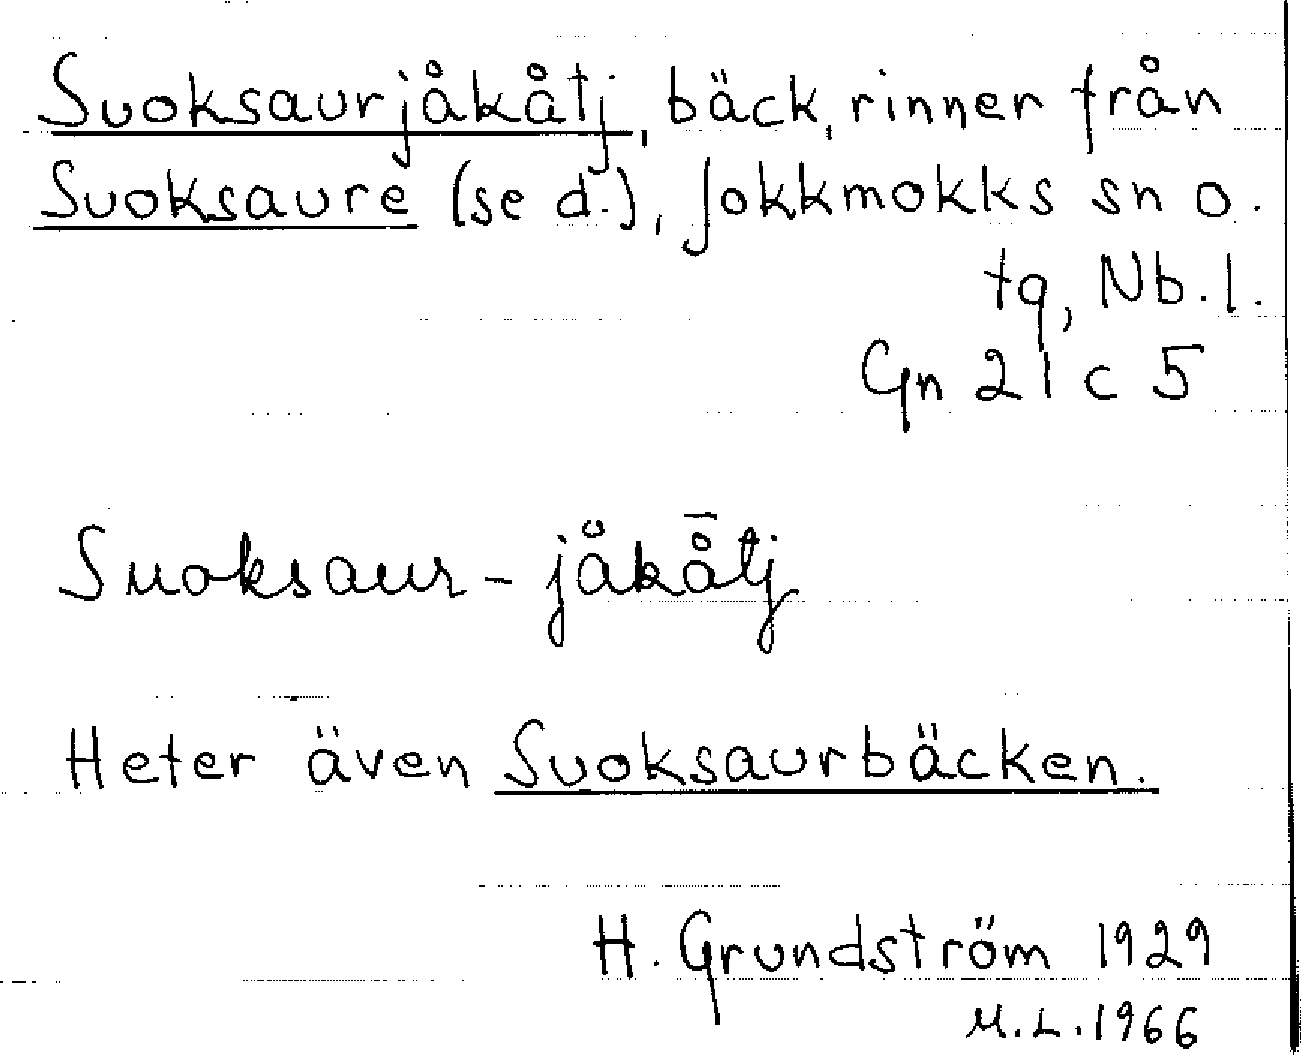 Suoksaurjåkåtj, bäck, rinner från
Suoksaure (se d.), Jokkmokks sn o.
tg, Nb.l.
Gn 21 c 5
Suoksaur-jåkå̄tj
Heter även Suoksaurbäcken.
H. Grundström 1929
M.L. 1966